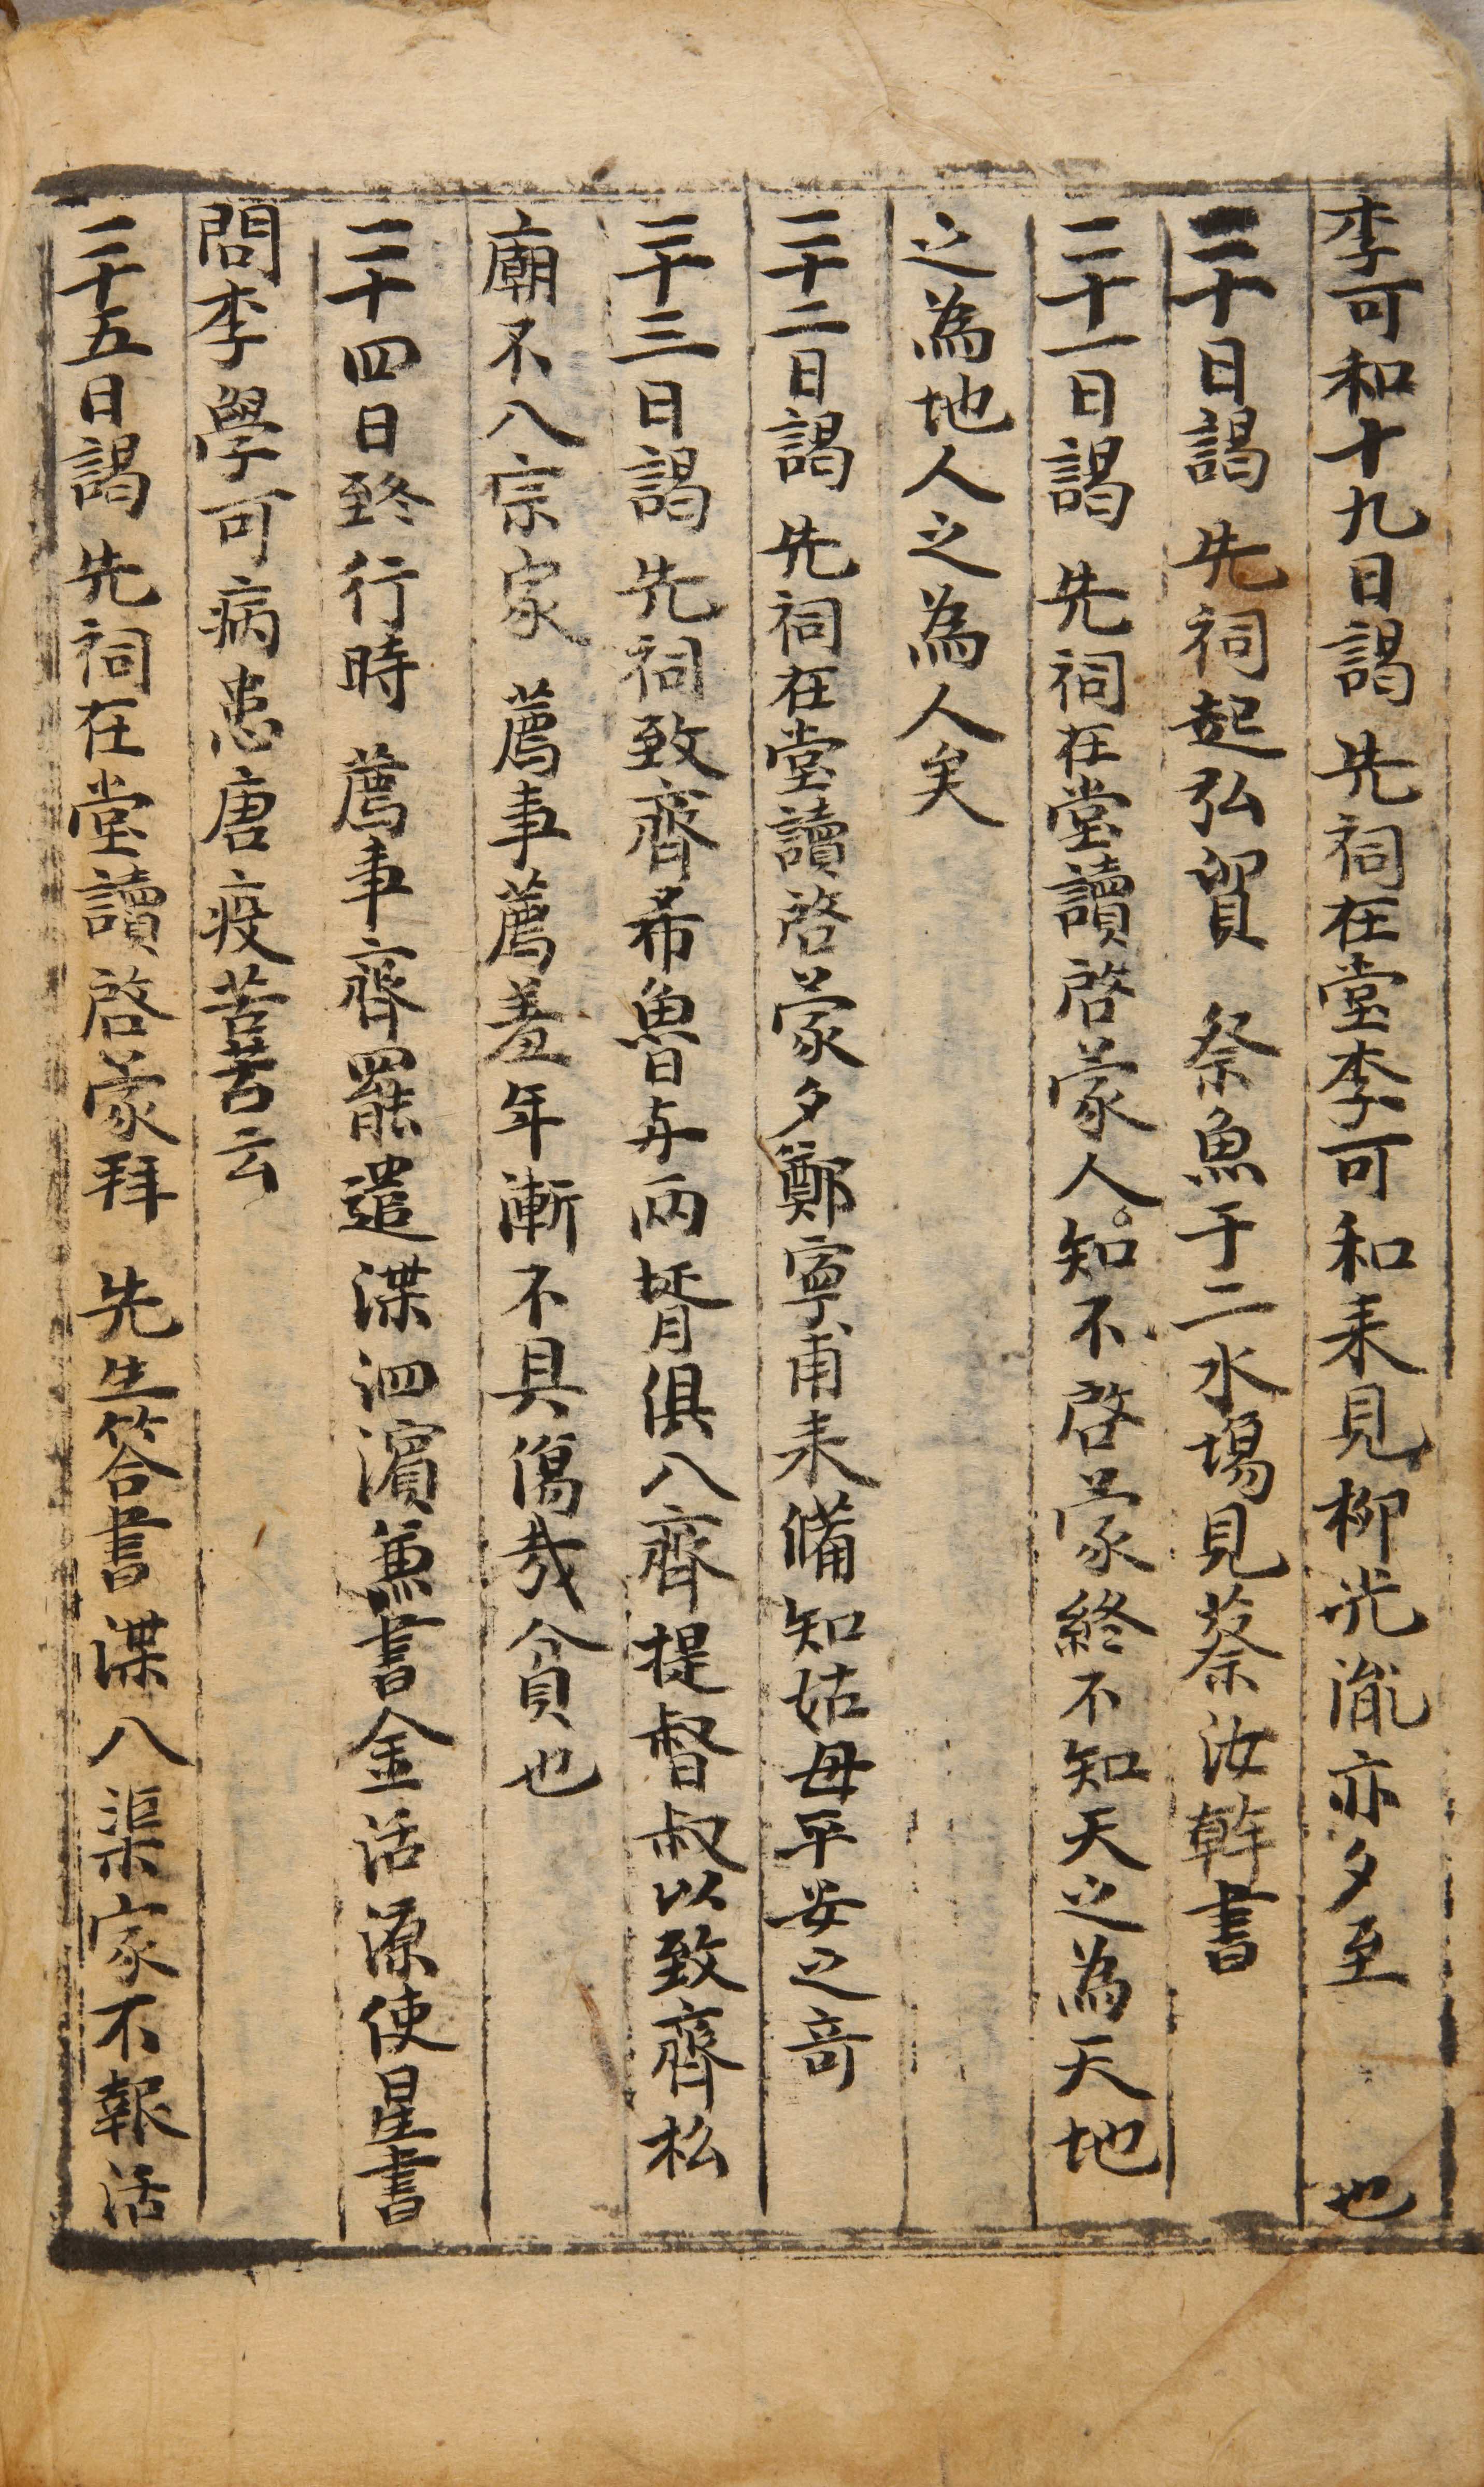 李可和十九日謁 先祠在堂李可和来見柳光胤亦夕至 也
二十日謁 先祠起弘貿 祭魚于二水場見蔡汝幹書
二十一日謁 先祠在堂讀啓蒙人知不啓蒙終不知天之為天地
之為地人之為人矣
二十二日謁 先祠在堂讀啓蒙夕鄭寧甫来備知姑母平安之奇
二十三日謁 先祠致齊希魯与兩壻俱入齊提督叔以致齊松
廟不入宗家 薦事薦羞年漸不具傷哉貧也
二十四日終行時 薦事齊罷遣渫泗濱兼書金活源使星書
問李學可病患唐疫苦苦云
二十五日謁 先祠在堂讀啓蒙拜 先生答書渫入渠家不報活